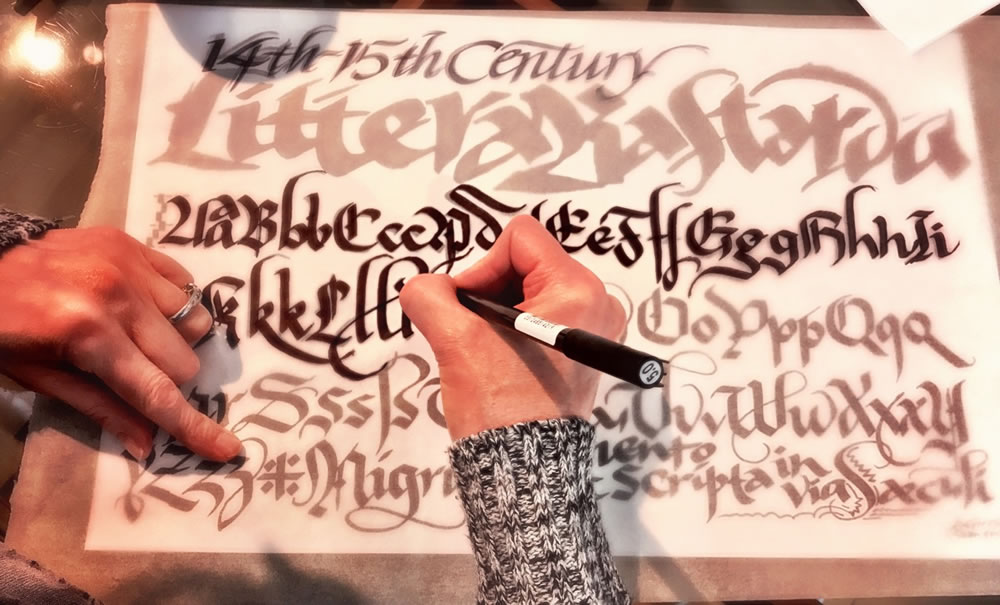 14th-15th Century
Littera Bastarda
AaBbbCccDd EeFfGggHhhIi
KkkLlll OoPppQqq
r Sssß VvWwXxxY
Zzz*Nigri mento
Scripta in via Sæculi
5.0